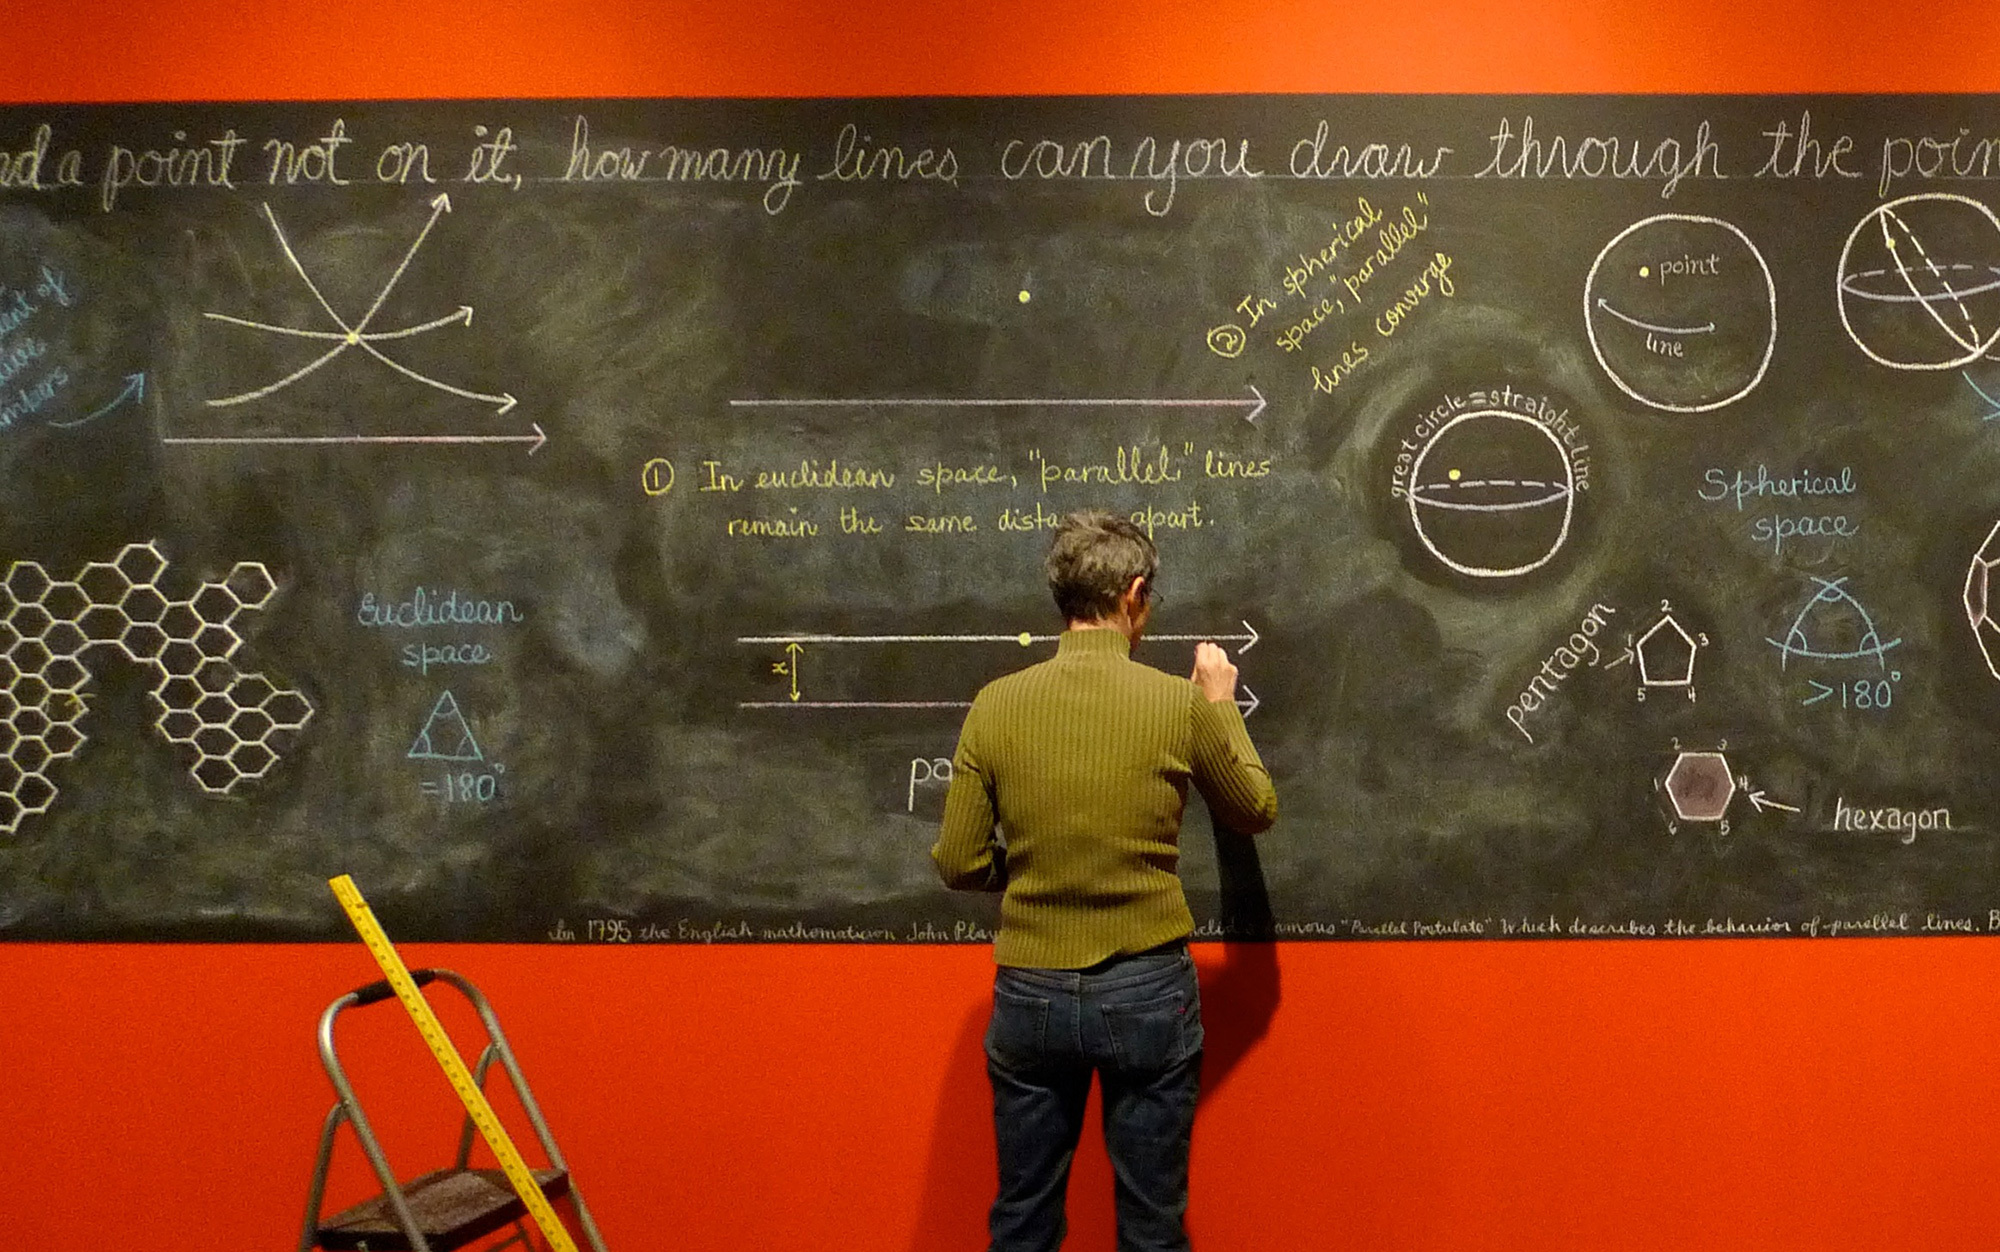 nd a point not on it, how many lines can you draw through the poin
ent of
mbers
① In euclidean space, "parallel" lines
remain the same dista apart.
② In spherical
space, "parallel"
lines converge
point
line
great circle = straight line
Spherical
space
>180°
Euclidean
space
=180°
x
pa
pentagon
1 2 3 4 5
hexagon
1 2 3 4 5 6
In 1795 the English mathematician John Play uclid's famous "Parallel Postulate" Which describes the behavior of parallel lines. B